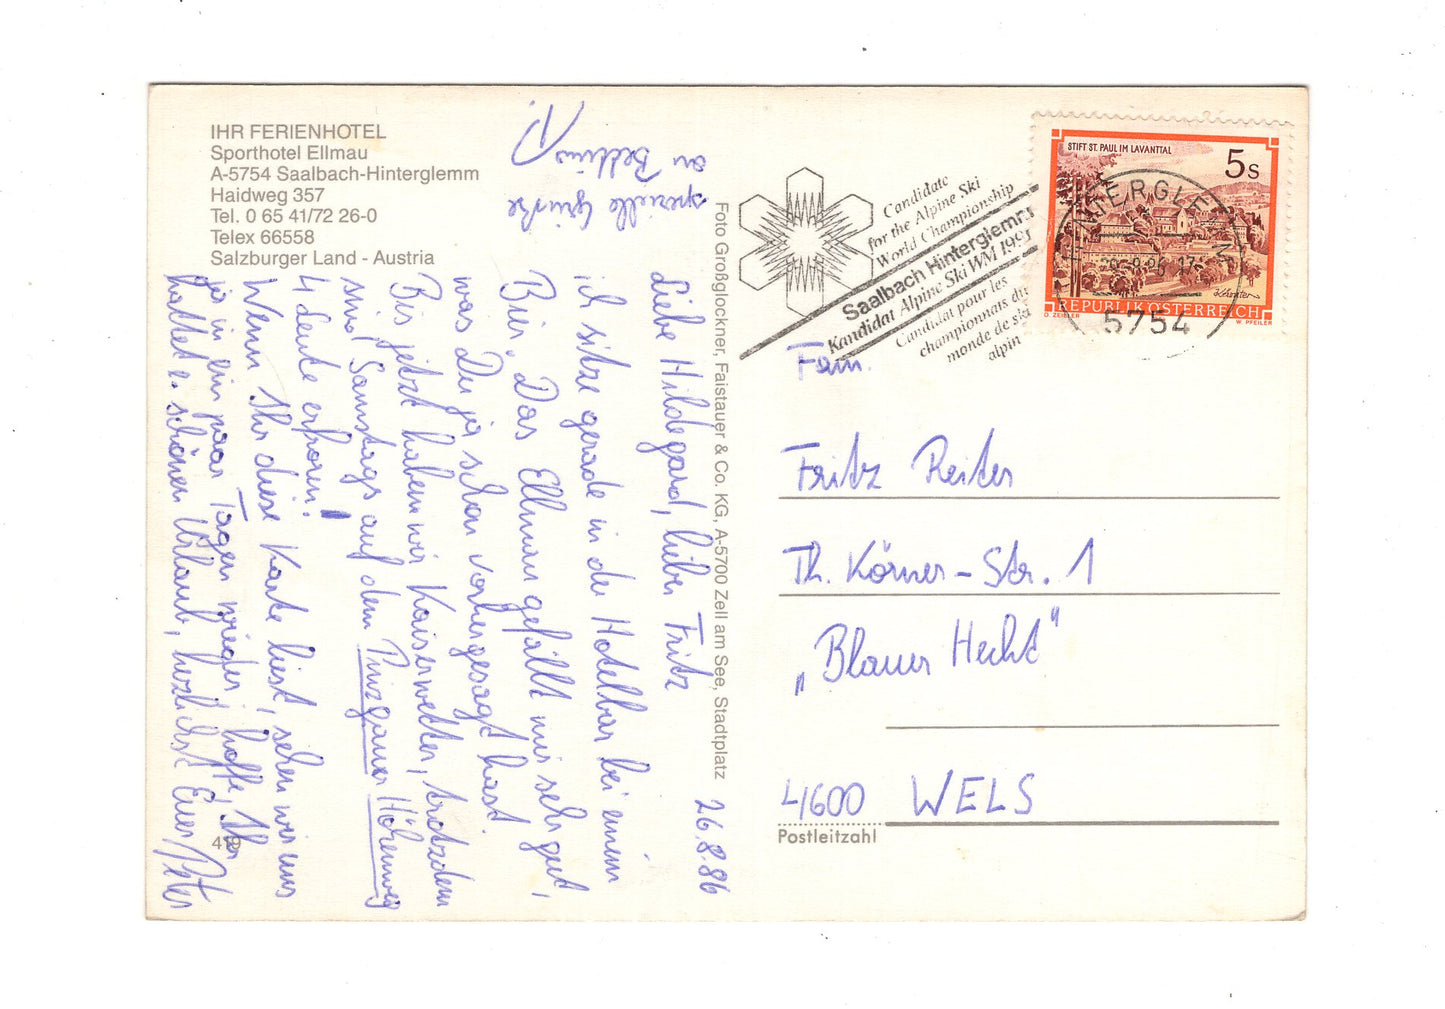 IHR FERIENHOTEL
Sporthotel Ellmau
A-5754 Saalbach-Hinterglemm
Haidweg 357
Tel. 0 65 41/72 26-0
Telex 66558
Salzburger Land - Austria
26.8.86
Liebe Hildegard, lieber Fritz
ich sitze gerade in der Hotelbar bei einem
Bier. Das Ellmau gefällt mir sehr gut,
was Du ja schon vorhergesagt hast.
Bis jetzt haben wir Kaiserwetter, trotzdem
sind Samstags auf dem Pinzgauer Höhenweg
4 Leute erfroren!
Wenn Ihr diese Karte liest, sehen wir uns
ja in ein paar Tagen wieder. hoffe, Ihr
hattet e. schönen Urlaub, herzlichst Euer Peter
spezielle Grüße
an Bettina
419
Foto Großglockner, Faistauer & Co. KG, A-5700 Zell am See, Stadtplatz
Candidate
for the Alpine Ski
World Championship
Saalbach Hinterglemm
Kandidat Alpine Ski WM 1991
Candidat pour les
championnats du
monde de ski
alpin
STIFT ST. PAUL IM LAVANTTAL
5s
REPUBLIK ÖSTERREICH
O. ZEILER
W. PFEILER
HINTERGLEMM
5754
Fam.
Fritz Reiter
Th. Körner-Str. 1
„Blauer Hecht"
4600 WELS
Postleitzahl